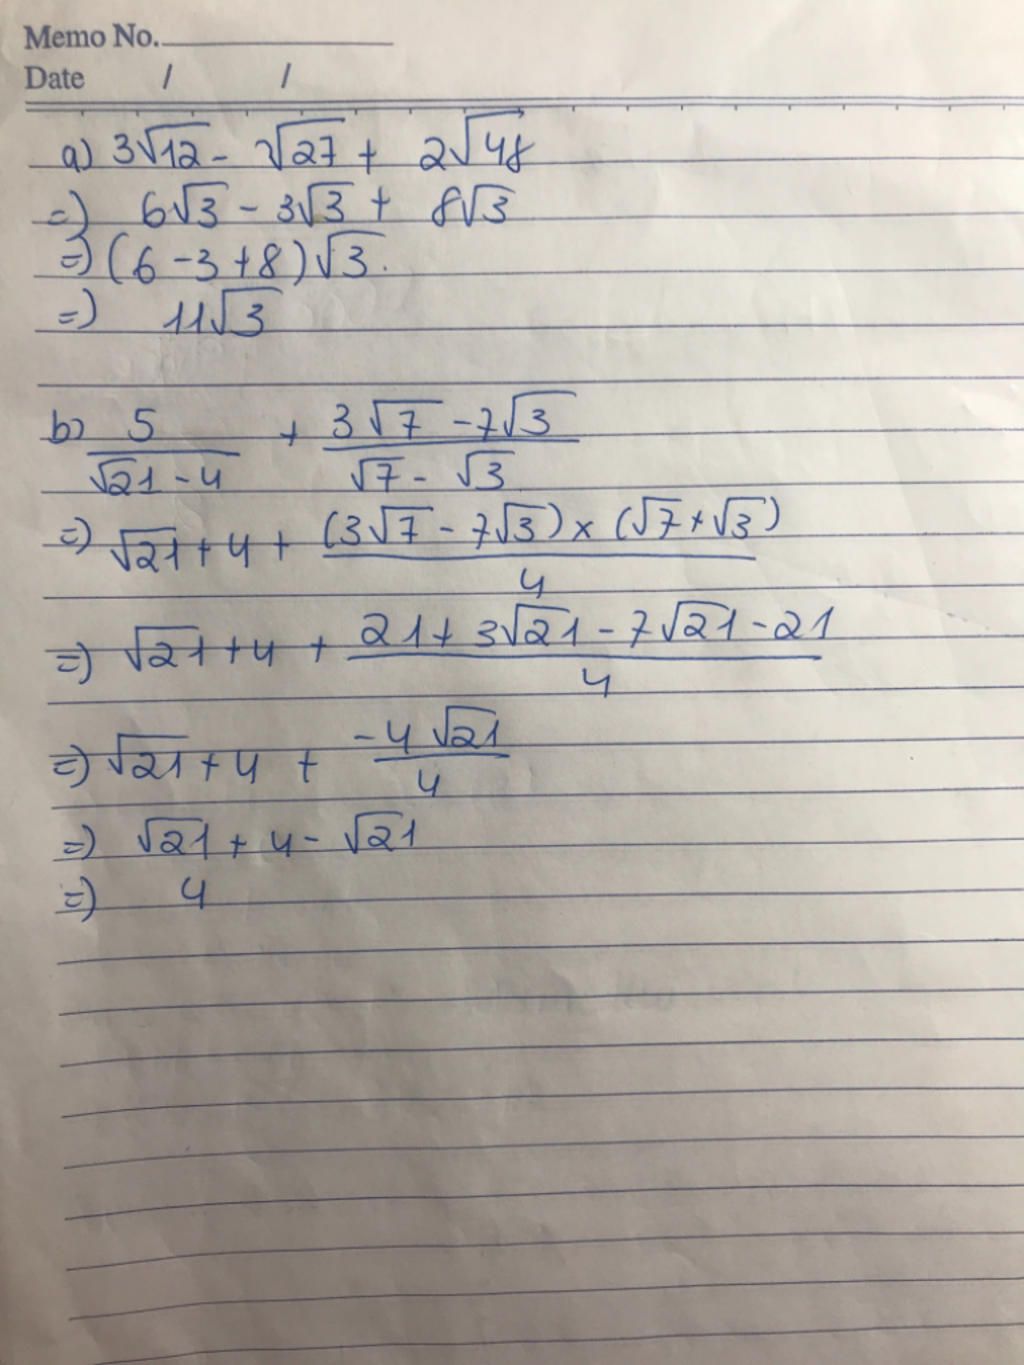 Memo No.
Date / /
a) 3√12 - √27 + 2√48
=) 6√3 - 3√3 + 8√3
=) (6 - 3 + 8)√3.
=) 11√3
b) 5/(√21 - 4) + (3√7 - 7√3)/(√7 - √3)
=) √21 + 4 + ((3√7 - 7√3) × (√7 + √3))/4
=) √21 + 4 + (21 + 3√21 - 7√21 - 21)/4
=) √21 + 4 + (-4√21)/4
=) √21 + 4 - √21
=) 4